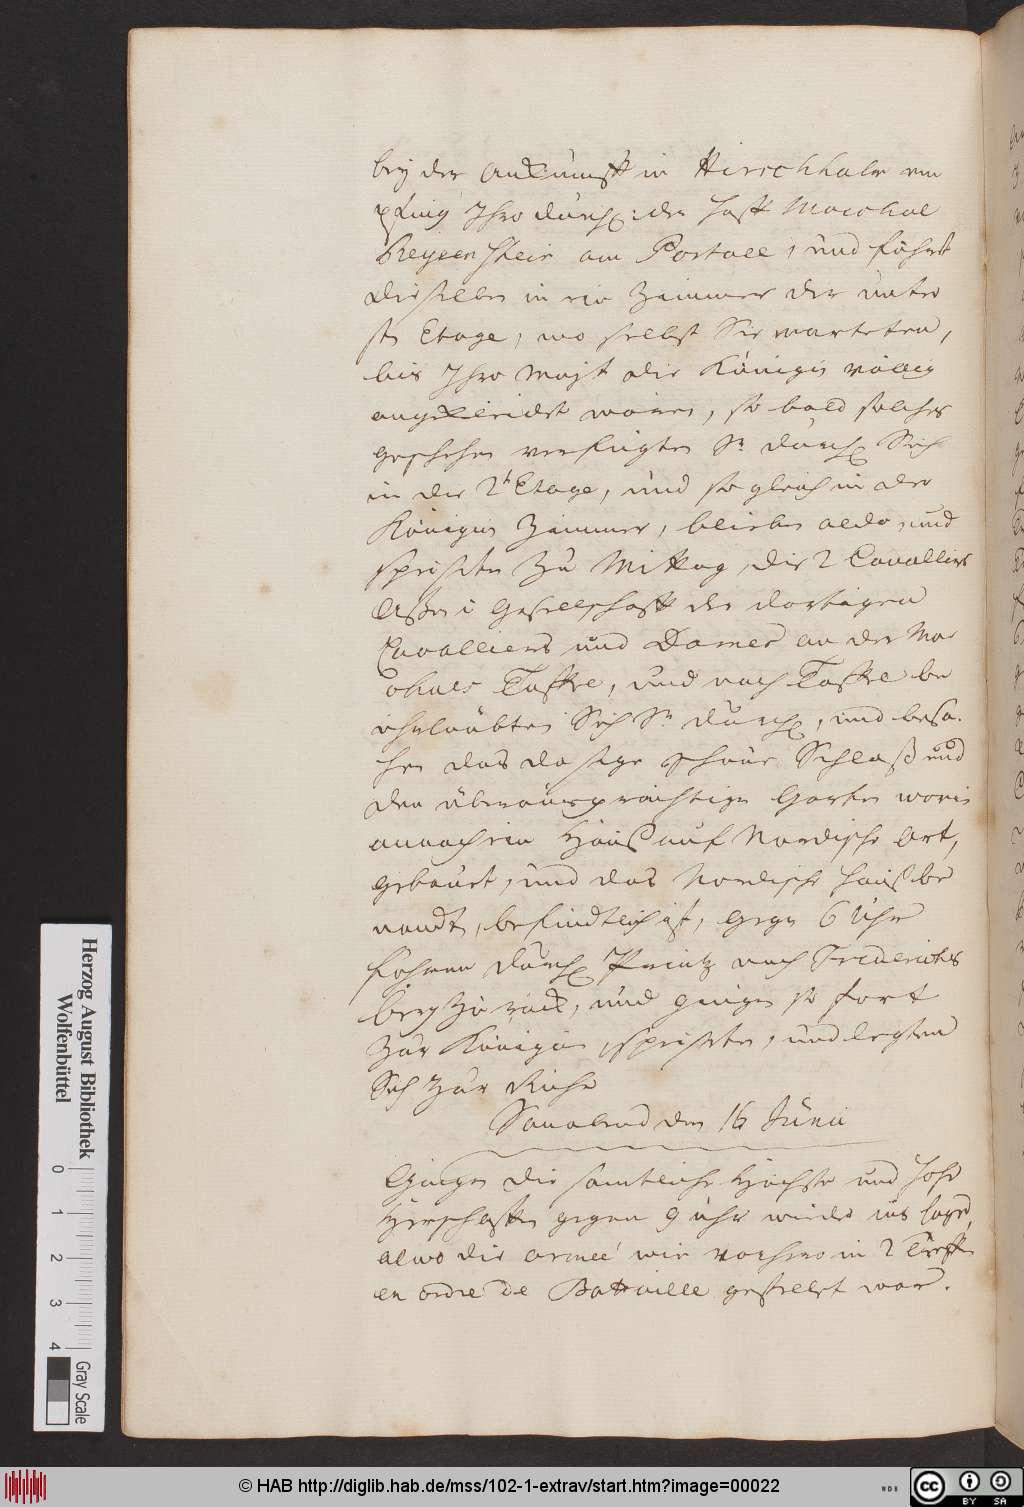 bey der Ankunfft in Hirschholm em
pfing Ihro Durchl: der Hoff Marchal
Reyzenstein am Portall, und führt
dieselben in ein Zimmer der unter
sten Etage, wo selbst Sie warteten,
bis Ihro Mayt die Königin völlig
angekleidet wären, so bald solches
geschehen verfügten Sr Durchl Sich
in die 2t Etage, und so gleich in der
Königin Zimmer, blieben aldo, und
speiseten zu Mittag, die 2 Cavalliers
Aßen in Gesellschafft der dortigen
Cavalliers und Dames an der Mar
chals Taffel, und nach Taffel be
uhrlaubten Sich Sr Durchl, und besa-
hen das dasige schöne Schloß und
den überaus prächtigen Garten worin
annoch ein Hauß auf Nordische Art,
gebauet, und das Nordische Hauß be
nandt, befindtlich ist, gegen 6 Uhr
fuhren Durchl Printz nach Friderichs
berg zurück, und gingen so fort
zur Königin, speiseten, und legten
Sich zur Ruhe
Sonabend den 16 Junii
Gingen die samtliche Höchste und Hohe
Herschafften gegen 9 Uhr wieder ins Lager,
alwo die Armeé wie vorhero in 2 Treffen
en ordre de Battaille gestellet war.
Herzog August Bibliothek
Wolfenbüttel
0 1 2 3 4
Gray Scale
© HAB http://diglib.hab.de/mss/102-1-extrav/start.htm?image=00022
WDB
cc BY SA